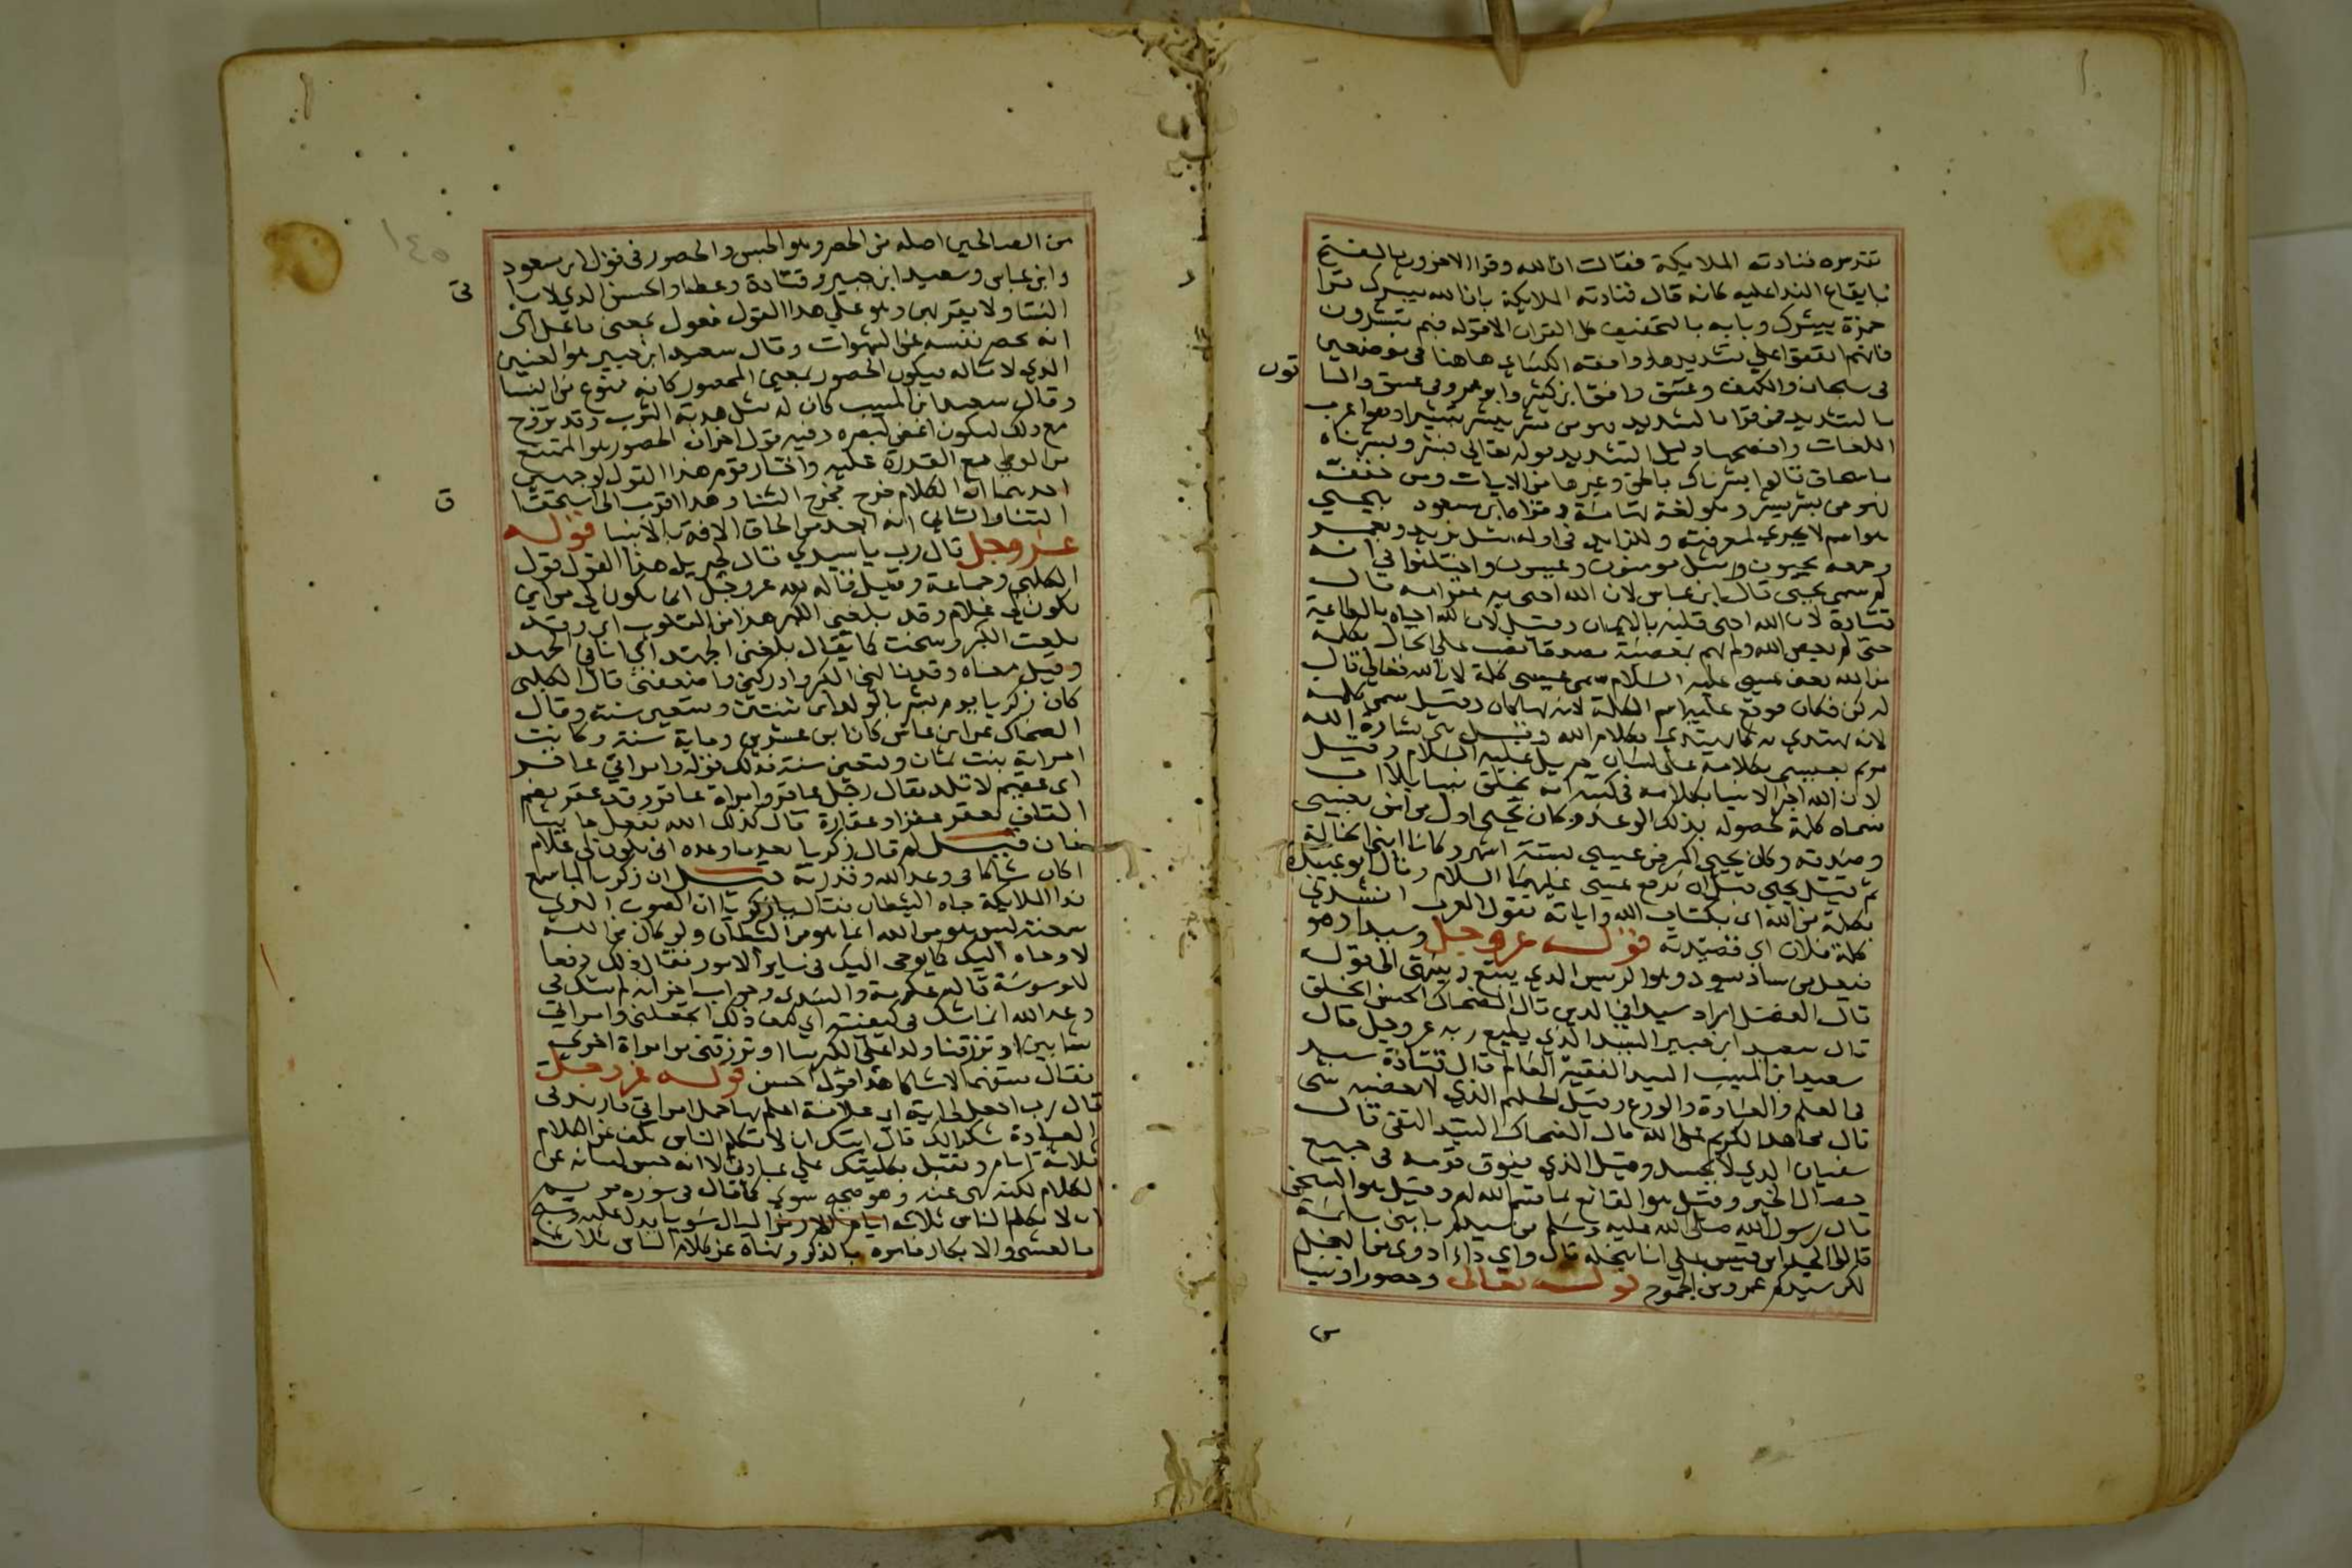 تقديره فنادته الملايكة فقالت ان الله وقرا الاخرون بالفتح
بايقاع الندا عليه كانه قال فنادته الملايكة بان الله يبشرك قرا
حمزة يبشرك وبابه بالتخفيف كل القران الا قوله فبم تبشرون
فانهم اتفقوا علي تشديدها ووافقه الكسائي هاهنا في موضعين
في سبحان والكهف وعسق وافق ابن كثير وابو عمرو في عسق والبا
بالتشديد فمن قرا بالتشديد فهو من بشر يبشر تبشيرا وهو اعرب
اللغات وافصحها دليل التشديد قوله تعالي فبشر وبشرناه
باسحاق قالوا بشرناك بالحق وغيرها من الايات ومن خفف
فهو من بشر يبشر وهو لغة تهامة وقراه ابن مسعود بيحيي
هو اسم لا يجري لمعرفته وللزايد في اوله مثل يزيد ويعمر
وجمعه يحيون مثل موسون وعيسون واختلفوا في انه
لم سمي يحيي قال ابن عباس لان الله احيي به عقر امه قال
قتادة لان الله احيي قلبه بالايمان وقيل لان الله احياه بالطاعة
حتي لم يعص الله ولم يهم بمعصية مصدقا نصب علي الحال بكلمة
من الله يعني عيسي عليه السلام سمي عيسي كلمة لان الله تعالي قال
له كن فكان فوقع عليه اسم الكلمة لانه بها كان وقيل سمي كلمة
لانه يهتدي به كما يهتدي بكلام الله وقيل هي بشارة الله
مريم بعيسي بكلامه علي لسان جبريل عليه السلام وقيل
لان الله اخبر الانبيا بكلامه في كتبه انه يخلق نبيا بلا اب
فسماه كلمة لحصوله بذلك الوعد وكان يحيي اول من امن بعيسي
وصدقه وكان يحيي اكبر من عيسي بستة اشهر وكانا ابني الخالة
ثم قتل يحيي قبل ان يرفع عيسي عليهما السلام وقال ابو عبيدة
بكلمة من الله اي بكتاب الله واياته تقول العرب انشدني
كلمة فلان اي قصيدته قوله عز وجل وسيدا وهو
فيعل من ساد يسود وهو الرئيس الذي يتبع وينتهي الي قوله
قال المفضل اراد سيدا في الدين قال الضحاك الحسن الخلق
قال سعيد ابن جبير السيد الذي يطيع ربه عز وجل قال
سعيد ابن المسيب السيد الفقيه العالم قال قتادة سيد
في العلم والعبادة والورع وقيل الحليم الذي لا يغضبه شي
قال مجاهد الكريم علي الله قال الضحاك السيد التقي قال
سفيان الذي لا يحسد وقيل الذي يفوق قومه في جميع
خصال الخير وقيل هو القانع بما قسم الله له وقيل هو السخي
قال رسول الله صلي الله عليه وسلم من سيدكم يا بني سلمة
قالوا الجد ابن قيس علي انا نبخله قال واي داء ادوي من البخل
لكن سيدكم عمرو بن الجموح قوله تعالي وحصورا ونبيا
من الصالحين اصله من الحصر وهو الحبس والحصور في قول ابن مسعود
وابن عباس وسعيد ابن جبير وقتادة وعطا والحسن الذي لا ياتي
النسا ولا يقربهن وهو علي هذا القول فعول بمعني فاعل اي
انه يحصر نفسه عن الشهوات وقال سعيد ابن جبير هو العنين
الذي لا ماله فيكون الحصور بمعني المحصور كانه ممنوع من النسا
وقال سعيد ابن المسيب كان له مثل هدبة الثوب وقد تزوج
مع ذلك ليكون اغض لبصره وفيه قول اخر ان الحصور هو الممتنع
من الوطي مع القدرة عليه واختار قوم هذا القول لوجهين
احدهما ان الكلام خرج مخرج الثنا وهذا اقرب الي استحقاق
الثنا والثاني انه ابعد من الحاق الافة بالانبيا قوله
عز وجل قال رب يا سيدي قال لجبريل هذا القول قول
الكلبي وجماعة وقيل قاله لله عز وجل اني يكون لي من اين
يكون لي غلام وقد بلغني الكبر هذا من المقلوب اي وقد
بلغت الكبر وشخت كما يقال بلغني الجهد اي انا في الجهد
وقيل معناه وقد نالني الكبر وادركني واضعفني قال الكلبي
كان زكريا يوم بشر بالولد ابن ثنتين وتسعين سنة وقال
الضحاك عن ابن عباس كان ابن عشرين وماية سنة وكانت
امراته بنت ثمان وتسعين سنة فذلك قوله وامراتي عاقر
اي عقيم لا تلد يقال رجل عاقر وامراة عاقر وقد عقر بضم
القاف يعقر عقرا وعقارة قال كذلك الله يفعل ما يشا
فان قيل لم قال زكريا بعد ما وعده اني يكون لي غلام
اكان شاكا في وعد الله وقدرته قيل ان زكريا لما سمع
ندا الملايكة جاه الشيطان فقال يا زكريا ان الصوت الذي
سمعته ليس هو من الله انما هو من الشيطان ولو كان من الله
لاوحاه اليك كما يوحي اليك في ساير الامور فقال ذلك دفعا
للوسوسة قاله عكرمة والسدي وجواب اخر انه لم يشك في
وعد الله انما شك في كيفيته اي كيف ذلك اتجعلني وامراتي
شابين او ترزقنا ولدا علي الكبر منا او ترزقني من امراة اخري
فقال مستفهما لا شاكا هذا قول الحسن قوله عز وجل
قال رب اجعل لي اية اي علامة اعلم بها حمل امراتي فازيد في
العبادة شكرا لك قال ايتك ان لا تكلم الناس تكف عن الكلام
ثلاثة ايام وتقبل بكليتك علي عبادتي لا انه حبس لسانه عن
الكلام لكنه نهي عنه وهو صحيح سوي كما قال في سورة مريم
ان لا تكلم الناس ثلاث ليال سويا يدل عليه وسبح
بالعشي والابكار فامره بالذكر ونهاه عن كلام الناس ثلاثة